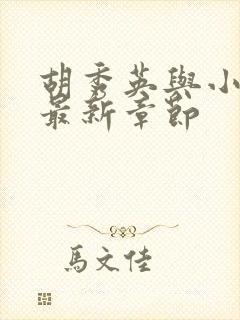 胡秀英與小
最新章節
馬文佳